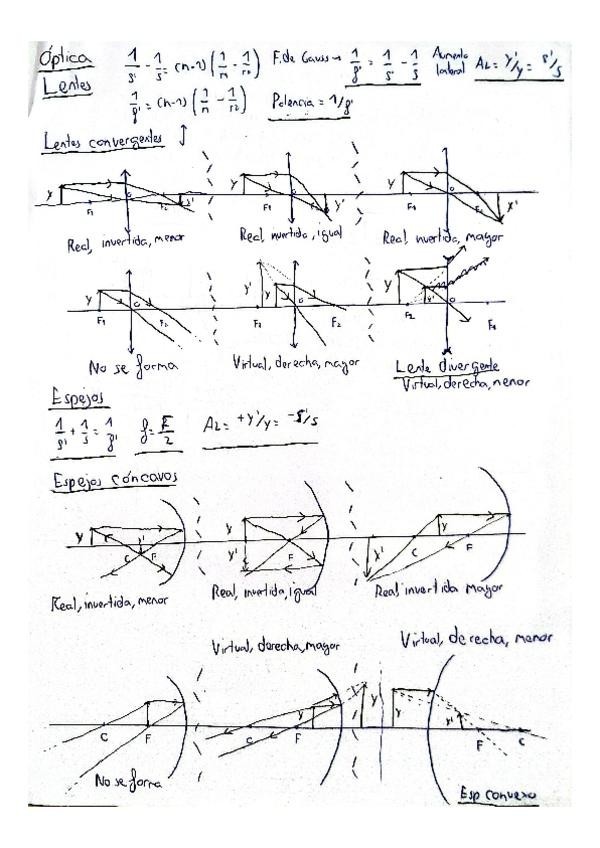 Óptica
Lentes
1/s' - 1/s = (n-1)(1/r1 - 1/r2) F. de Gauss → 1/f' = 1/s' - 1/s Aumento lateral AL = y'/y = s'/s
1/f' = (n-1)(1/r1 - 1/r2) Potencia = 1/f'
Lentes convergentes
y F1 O F2 y'
y F1 O F2 y'
y F1 O F2 y'
Real, invertida, menor
Real, invertida, igual
Real, invertida, mayor
y F1 O F2
y' y F2 O F2
y F2 y' O F1
No se forma
Virtual, derecha, mayor
Lente divergente
Virtual, derecha, menor
Espejos
1/s' + 1/s = 1/f' f = R/2 AL = +y'/y = -s'/s
Espejos cóncavos
y C y' F
y y' F
y' C y F
Real, invertida, menor
Real, invertida, igual
Real invertida Mayor
Virtual, derecha, mayor
Virtual, derecha, menor
C F
C y F y'
y y' F C
No se forma
Esp convexo